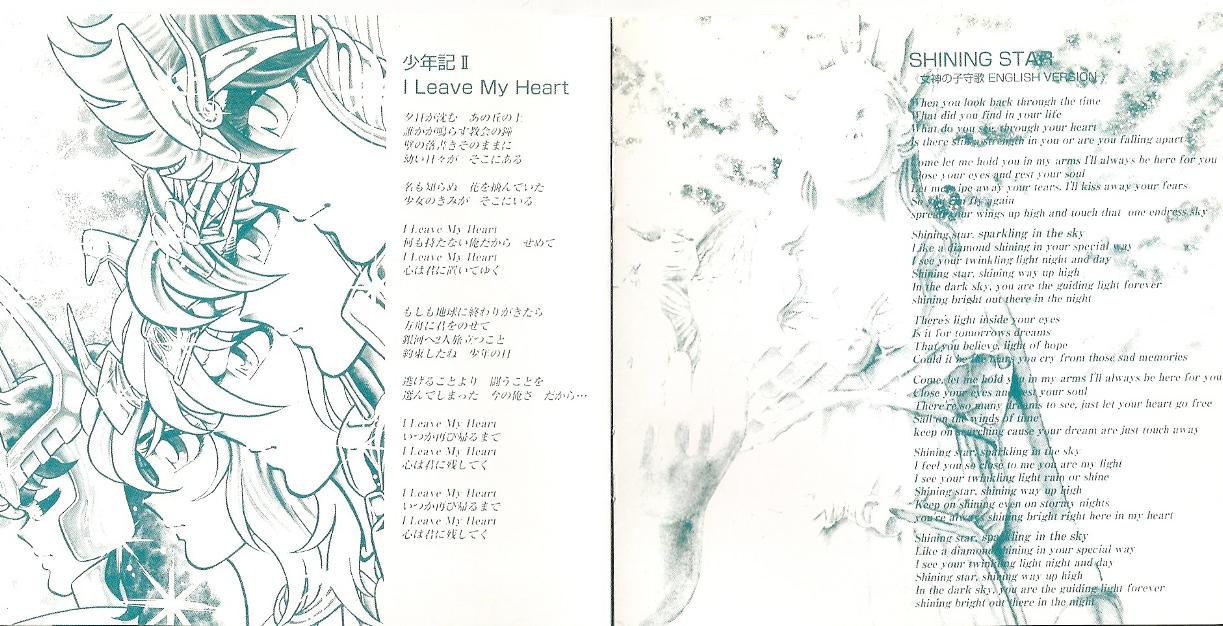 少年記 Ⅱ
I Leave My Heart
夕日が沈む　あの丘の上
誰かが鳴らす教会の鐘
壁の落書きそのままに
幼い日々が　そこにある
名も知らぬ　花を摘んでいた
少女のきみが　そこにいる
I Leave My Heart
何も持たない俺だから　せめて
I Leave My Heart
心は君に置いてゆく
もしも地球に終わりがきたら
方舟に君をのせて
銀河へ2人旅立つこと
約束したね　少年の日
逃げることより　闘うことを
選んでしまった　今の俺さ　だから…
I Leave My Heart
いつか再び帰るまで
I Leave My Heart
心は君に残してく
I Leave My Heart
いつか再び帰るまで
I Leave My Heart
心は君に残してく
SHINING STAR
（女神の子守歌 ENGLISH VERSION）
When you look back through the time
What did you find in your life
What do you see through your heart
Is there still strength in you or are you falling apart
Come let me hold you in my arms I'll always be here for you
Close your eyes and rest your soul
Let me wipe away your tears, I'll kiss away your fears
So you can fly again
spread your wings up high and touch that one endress sky
Shining star, sparkling in the sky
Like a diamond shining in your special way
I see your twinkling light night and day
Shining star, shining way up high
In the dark sky, you are the guiding light forever
shining bright out there in the night
There's light inside your eyes
Is it for tomorrows dreams
That you believe, light of hope
Could it be the tears you cry from those sad memories
Come, let me hold you in my arms I'll always be here for you
Close your eyes and rest your soul
There're so many dreams to see, just let your heart go free
Sail on the winds of time
keep on searching cause your dream are just touch away
Shining star, sparkling in the sky
I feel you so close to me you are my light
I see your twinkling light rain or shine
Shining star, shining way up high
Keep on shining even on stormy nights
you're always shining bright right here in my heart
Shining star, sparkling in the sky
Like a diamond shining in your special way
I see your twinkling light night and day
Shining star, shining way up high
In the dark sky, you are the guiding light forever
shining bright out there in the night